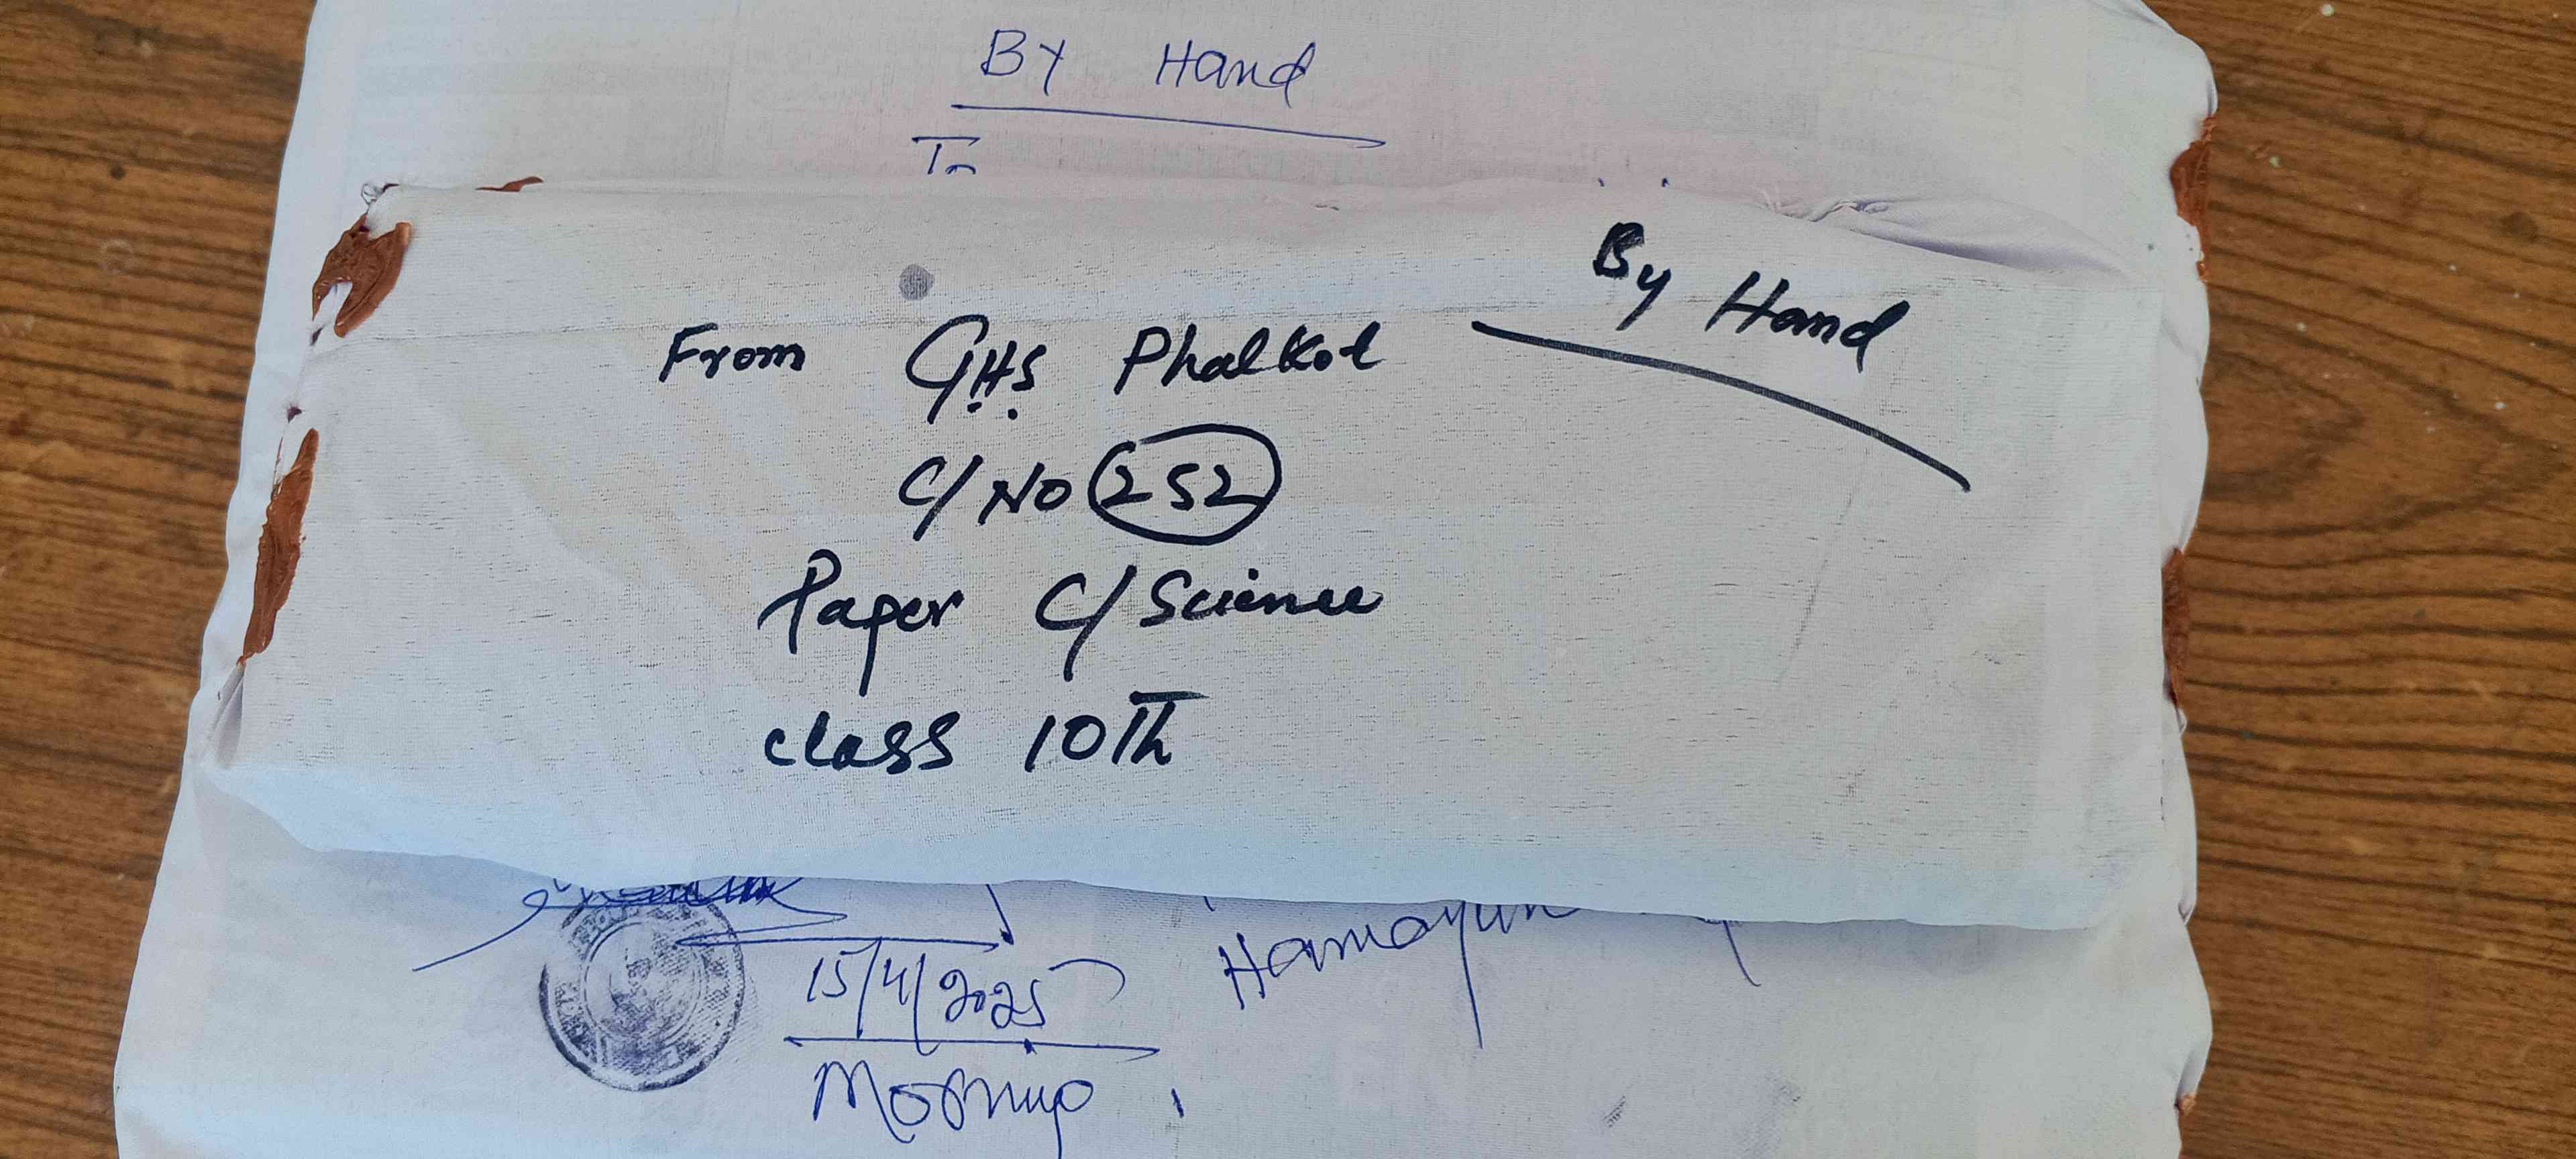 BY Hand
To
By Hand
From GHS Phalkot
C/NO 252
Paper C/Science
class 10Th
15/4/2025
Morning
Hamayun